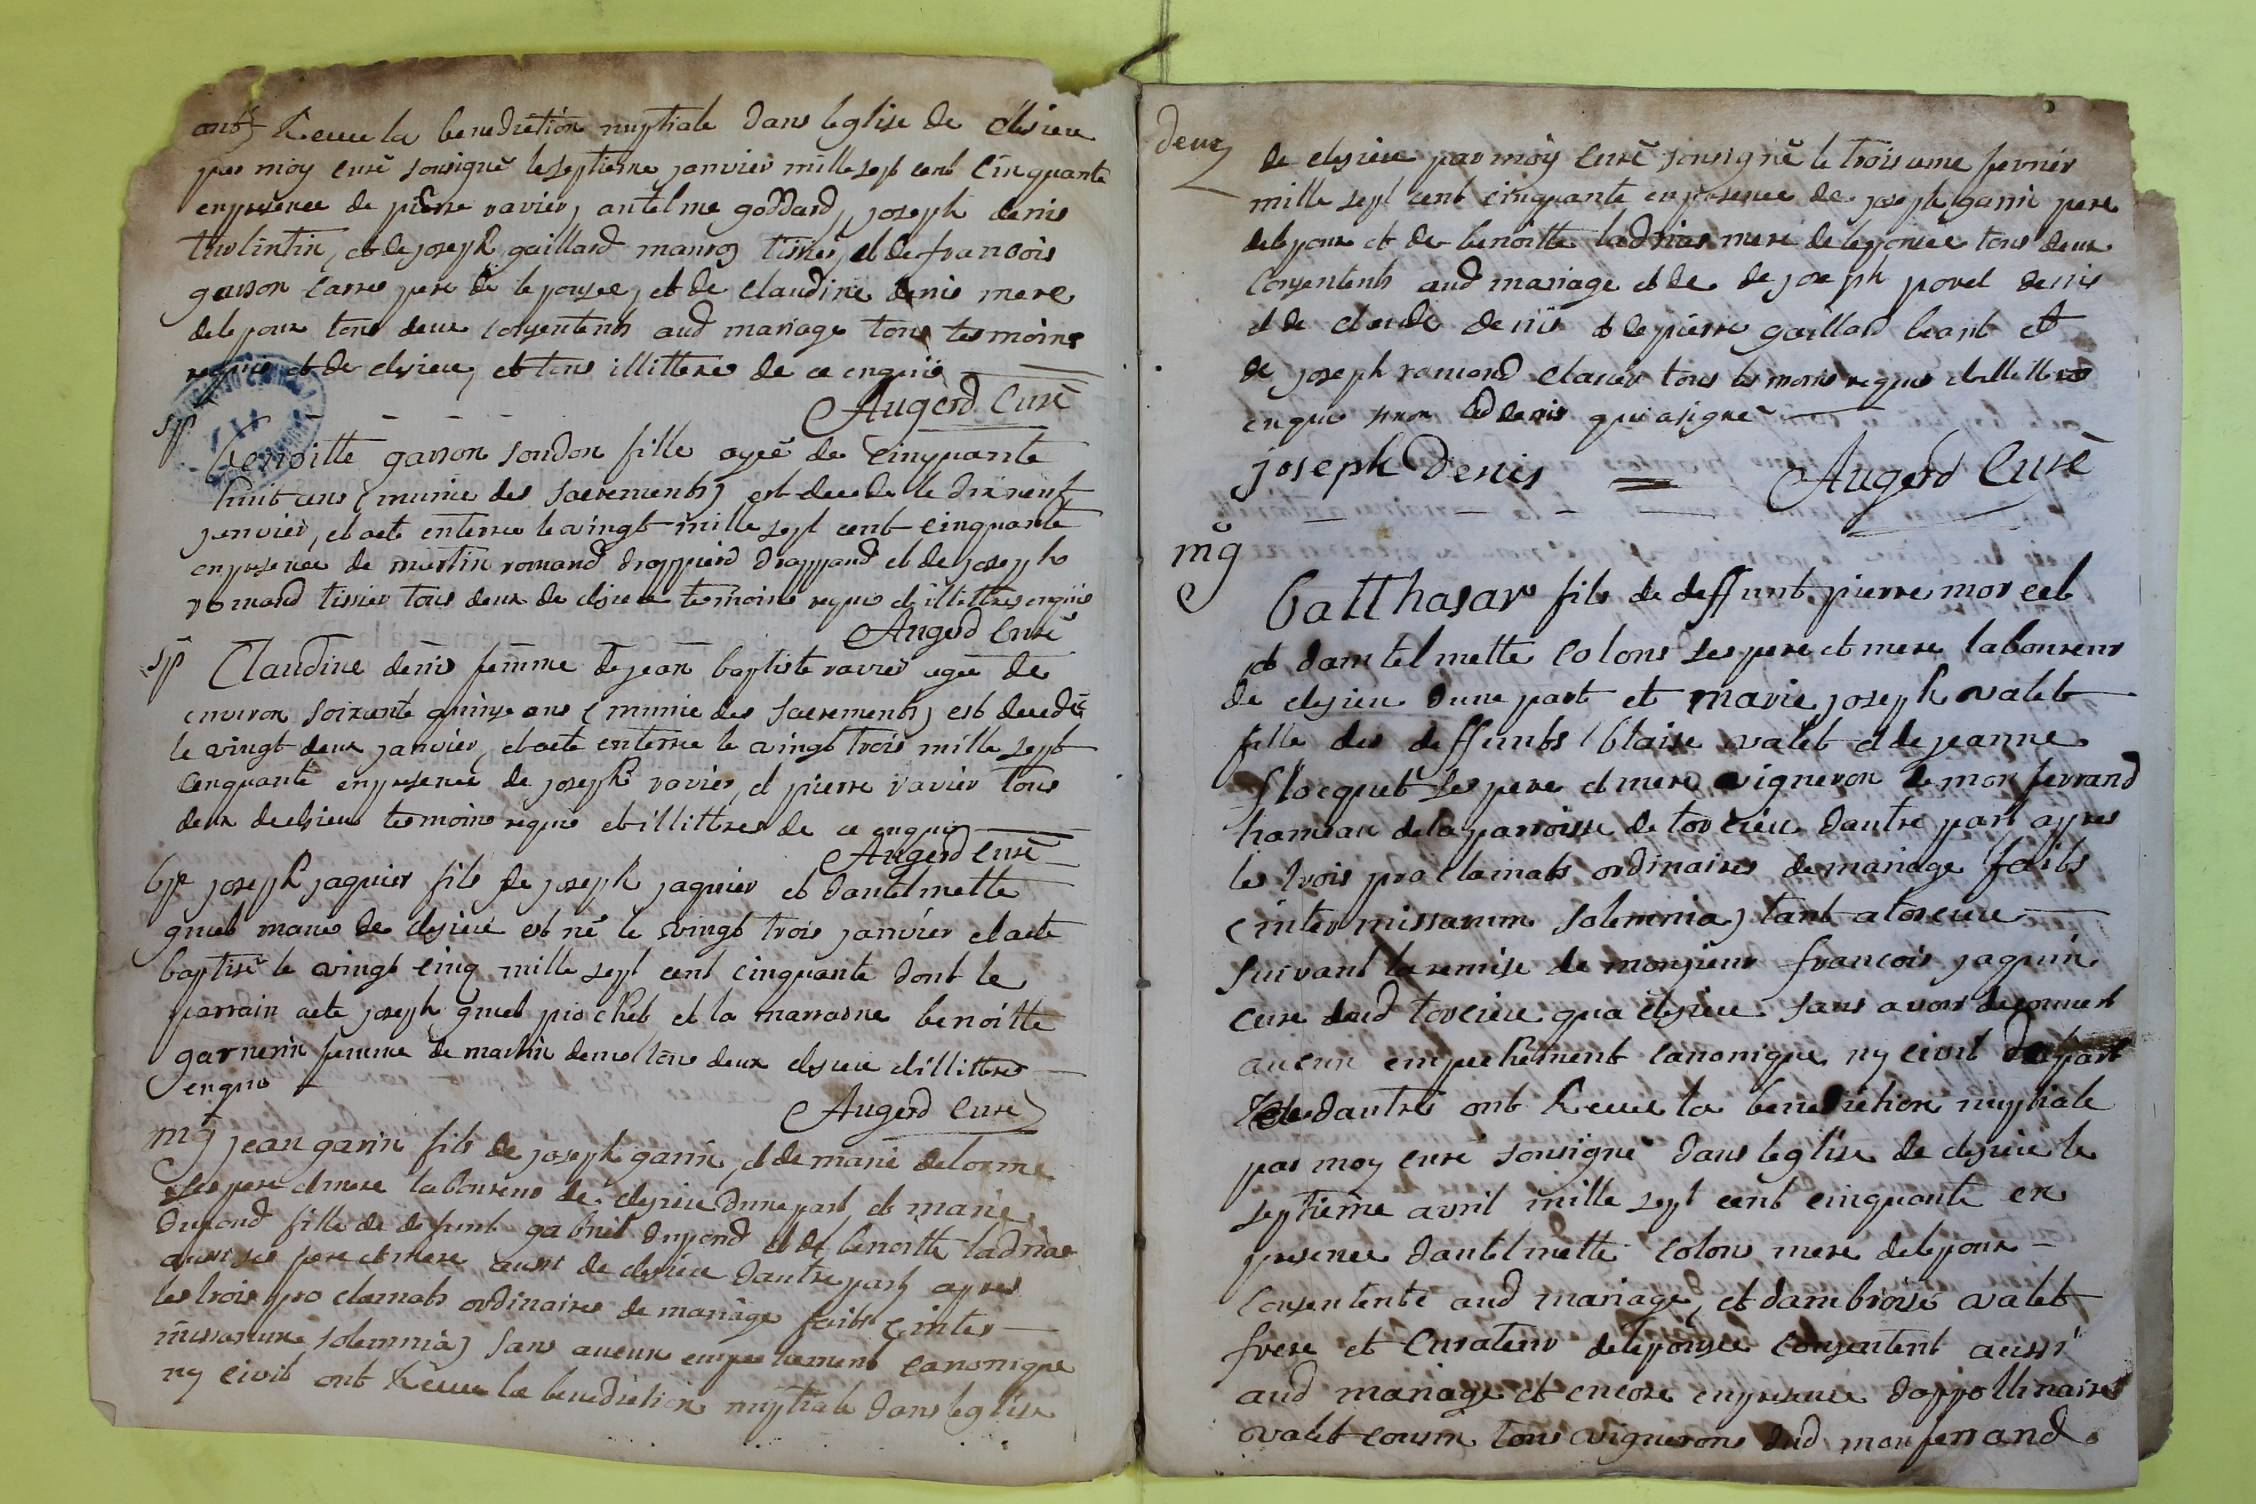 ont Receue la benediction nuptiale dans leglise de clesieu
par moy curé sousigné le septieme janvier mille sept cent cinquante
enpresence de pierre ravier, antelme goddard, joseph denis
et de joseph gaillard tissier, et de francois
garson pere de lepousee, et de claudine denis mere
delepoux tous deux consentents aud mariage tous temoins
requis et de clesieu, et tous illitteres de ce enquis
Augerd Curé
sp
benoitte garson fille agée de cinquante
huit ans (munie des sacrements) est decede le dixneuf
janvier, et aete enterree le vingt mille sept cent cinquante
enpresence de martin romand et de joseph
romand tissier tous deux de clesieu temoins requis et illittres enquis
Augerd Curé
sp Claudine denis femme de jean baptiste ravier agée de
environ soixante quinze ans (munie des sacrements) est decedée
le vingt deux janvier, et aete enterree le vingt trois mille sept
cinquante enpresence de joseph ravier, et pierre ravier tous
deux de clesieu temoins requis et illittres de ce enquis
Augerd curé
bp joseph jaquier fils de joseph jaquier et dantelmette
de clesieu est né le vingt trois janvier et aete
baptisé le vingt cinq mille sept cent cinquante dont le
parrain aete joseph et la marraine benoitte
garnerin femme de martin tous deux clesieu et illittres
enquis
Augerd curé
mg jean garin fils de joseph garin, et de marie delorme
ses pere et mere laboureurs de clesieu dune part, et marie
dupond fille de defunt gabriel dupond et de benoitte ladrias
aussi ses pere et mere aussi de clesieu dautre part apres
les trois proclamats ordinaires de mariage faits (inter
missarum solemnia) sans aucun empechement canonique
ny civil ont Receue la benediction nuptiale dans leglise
deux
de clesieu par moy curé sousigné le troisieme fevrier
mille sept cent cinquante enpresence de joseph garin pere
delepoux et de benoitte ladrias mere de lepousée tous deux
consentents aud mariage et de de joseph denis
et de claude denis et de pierre gaillard et
de joseph ramond tous temoins requis et illittres
enquis sinon led denis qui asigné
joseph Denis Augerd Curé
mg
balthasar fils de deffunt pierre morcel
et dantelmette colons ses pere et mere laboureurs
de clesieu dune part et marie joseph valet
fille des deffunts blaise valet et de jeanne
flocquet ses pere et mere vigneron de monferrand
hameau de la parroisse de torcieu dautre part apres
les trois proclamats ordinaires de mariage faits
(inter missarum solemnia) tant atorcieu
suivant la remise de monsieur francois jaquin
curé dud torcieu qua clesieu sans avoir decouvert
aucun empechement canonique ny civil de part
et dautre ont Receue la benediction nuptiale
par moy curé sousigné dans leglise de clesieu le
septieme avril mille sept cent cinquante en
presence dantelmette colons mere delepoux
consentente aud mariage, et dambroise valet
frere et curateur delepousee consentent aussi
aud mariage et encore enpresence dappollinaire
valet cousin tous vignerons dud monferrand